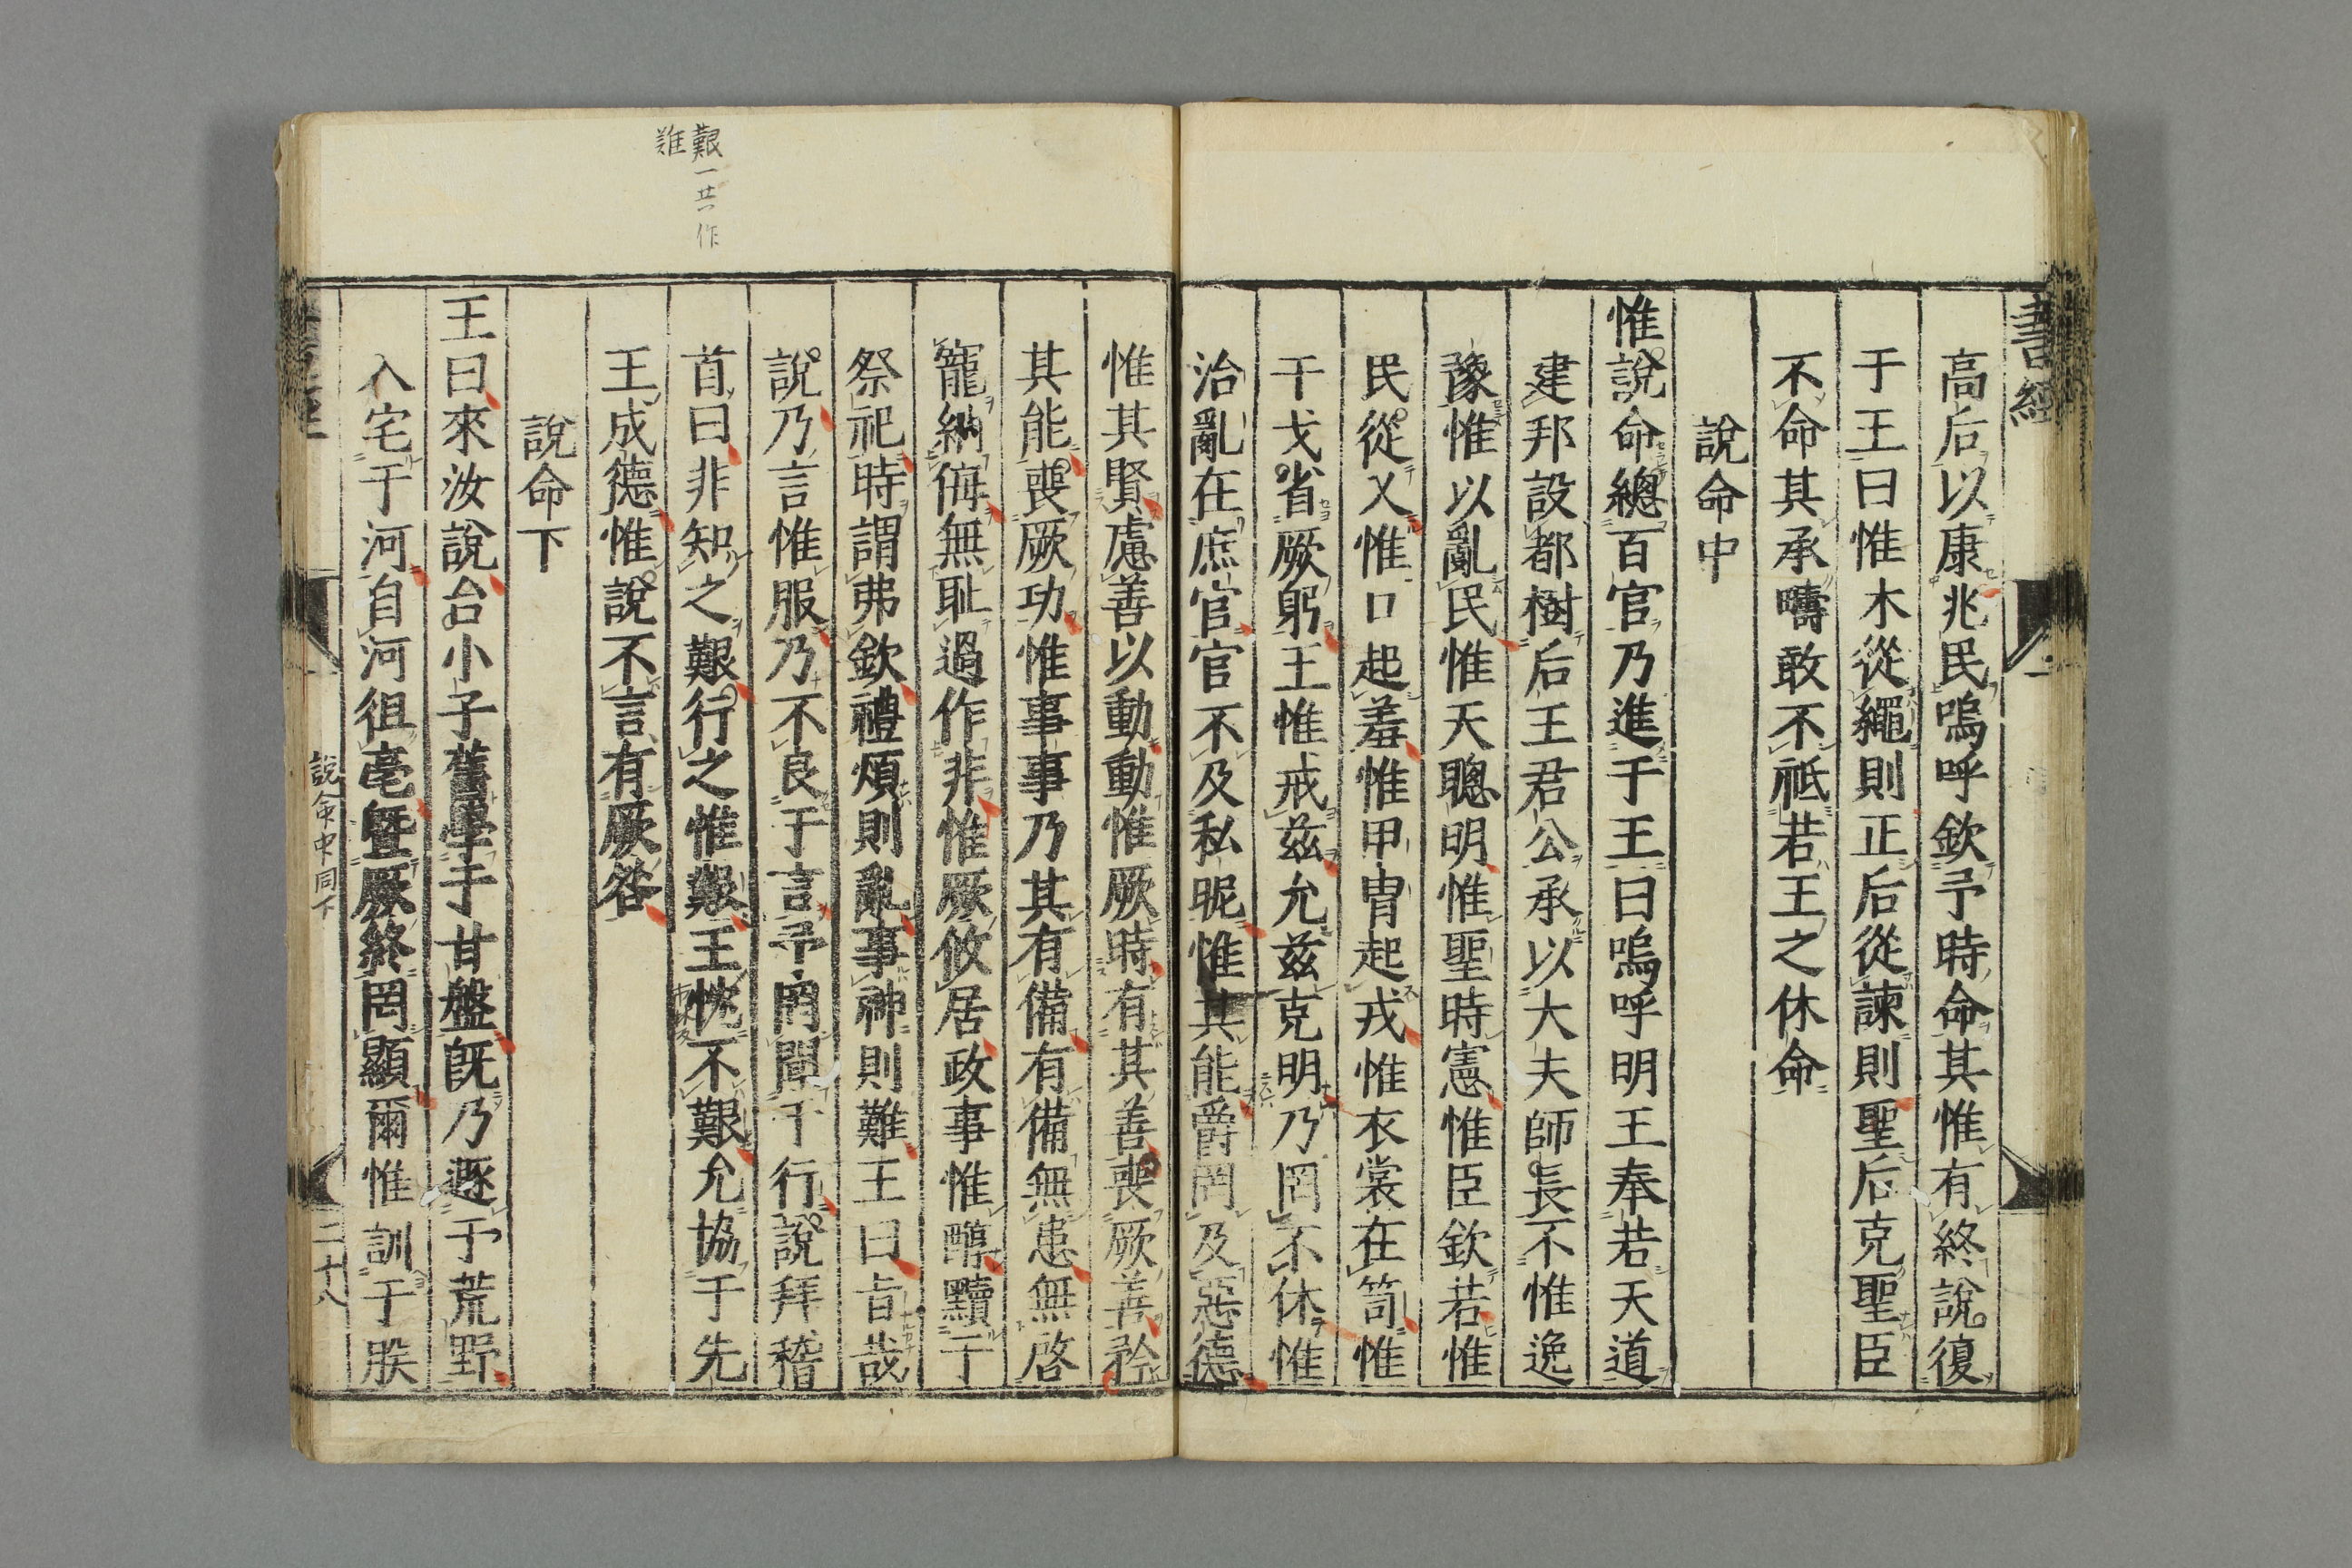 書經
高后以康兆民嗚呼欽予時命其惟有終說復
于王曰惟木從繩則正后從諫則聖后克聖臣
不命其承疇敢不祗若王之休命
說命中
惟說命總百官乃進于王曰嗚呼明王奉若天道
建邦設都樹后王君公承以大夫師長不惟逸
豫惟以亂民惟天聰明惟聖時憲惟臣欽若惟
民從乂惟口起羞惟甲冑起戎惟衣裳在笥惟
干戈省厥躬王惟戒茲允茲克明乃罔不休惟
治亂在庶官官不及私昵惟其能爵罔及惡德
惟其賢慮善以動動惟厥時有其善喪厥善矜
其能喪厥功惟事事乃其有備有備無患無啓
寵納侮無恥過作非惟厥攸居政事惟醇黷于
祭祀時謂弗欽禮煩則亂事神則難王曰旨哉
說乃言惟服乃不良于言予罔聞于行說拜稽
首曰非知之艱行之惟艱王忱不艱允協于先
王成德惟說不言有厥咎
說命下
王曰來汝說台小子舊學于甘盤旣乃遯于荒野
入宅于河自河徂亳曁厥終罔顯爾惟訓于朕
說命中同下
二十八
艱一共作
難